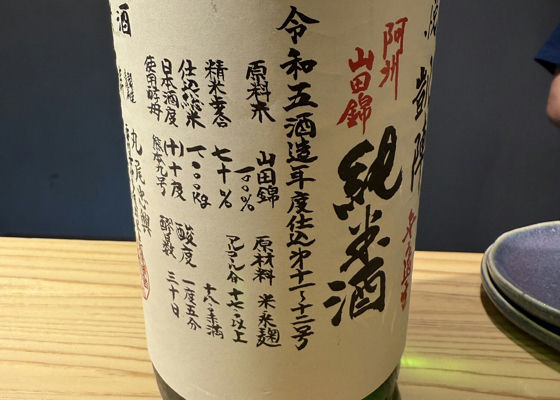 凱陣
阿州
山田錦
純米酒
令和五酒造年度仕込第十一〜十二号
原料米 山田錦 一〇〇%
精米歩合 七十%
仕込総米 一〇〇〇kg
日本酒度 (+)十度
使用酵母 熊本九号
原材料 米 米麹
アルコール分 十七以上
十八未満
酸度 一度五分
醪日数 三十日
丸尾忠興
酒